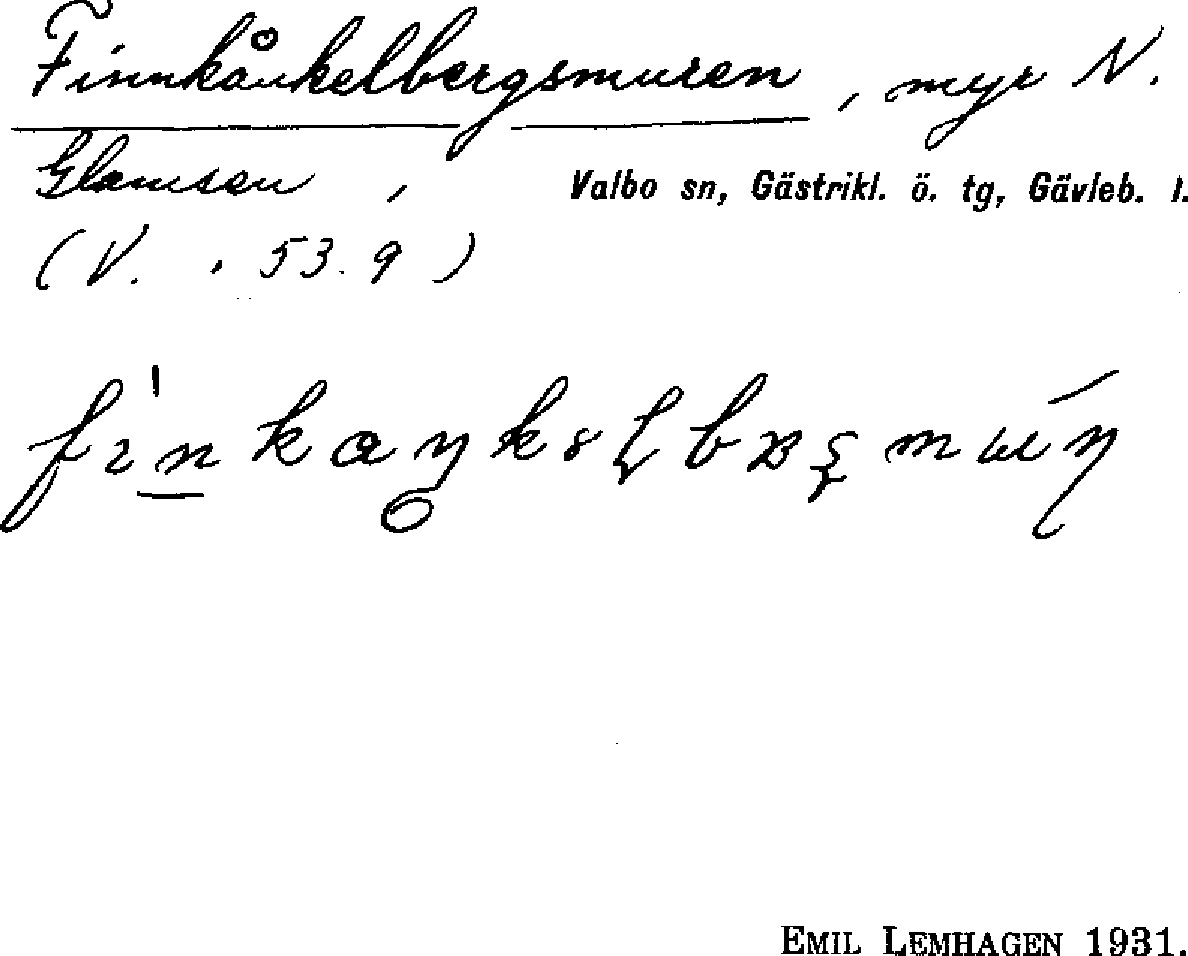 Finnkånkelbergsmuren, myr N.
Glamsen, Valbo sn, Gästrikl. ö. tg, Gävleb. l.
(V. . 53. 9)
EMIL LEMHAGEN 1931.